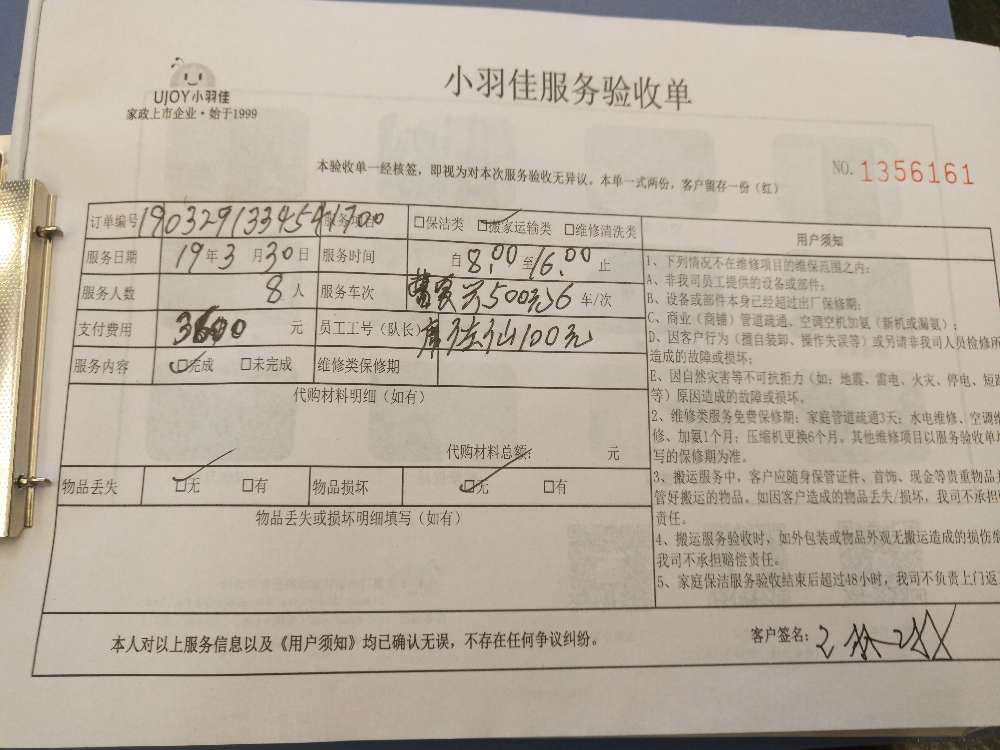 UJOY小羽佳
家政上市企业·始于1999
小羽佳服务验收单
本验收单一经核签，即视为对本次服务验收无异议。本单一式两份，客户留存一份（红）
NO. 1356161
订单编号 1903291334541700 服务项目 □保洁类 □搬家运输类 □维修清洗类
服务日期 19年3月30日 服务时间 自8:00至16:00止
服务人数 8人 服务车次 500元6车/次
支付费用 3600元 员工工号（队长） 100元
服务内容 □完成 □未完成 维修类保修期
代购材料明细（如有）
代购材料总额： 元
物品丢失 □无 □有 物品损坏 □无 □有
物品丢失或损坏明细填写（如有）
用户须知
1、下列情况不在维修项目的维保范围之内：
A、非我司员工提供的设备或部件；
B、设备或部件本身已经超过出厂保修期；
C、商业（商铺）管道疏通、空调空机加氨（新机或漏氨）；
D、因客户行为（擅自装卸、操作失误等）或另请非我司人员检修所
造成的故障或损坏；
E、因自然灾害等不可抗拒力（如：地震、雷电、火灾、停电、短路
等）原因造成的故障或损坏。
2、维修类服务免费保修期：家庭管道疏通3天；水电维修、空调维
修、加氨1个月；压缩机更换6个月。其他维修项目以服务验收单填
写的保修期为准。
3、搬运服务中，客户应随身保管证件、首饰、现金等贵重物品
管好搬运的物品。如因客户造成的物品丢失/损坏，我司不承担
责任。
4、搬运服务验收时，如外包装或物品外观无搬运造成的损伤
我司不承担赔偿责任。
5、家庭保洁服务验收结束后超过48小时，我司不负责上门返
本人对以上服务信息以及《用户须知》均已确认无误，不存在任何争议纠纷。
客户签名：